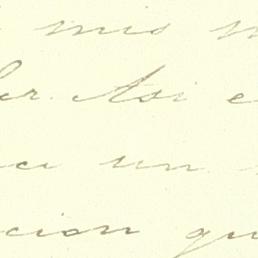 mis
er. Asi e
un
cion qu